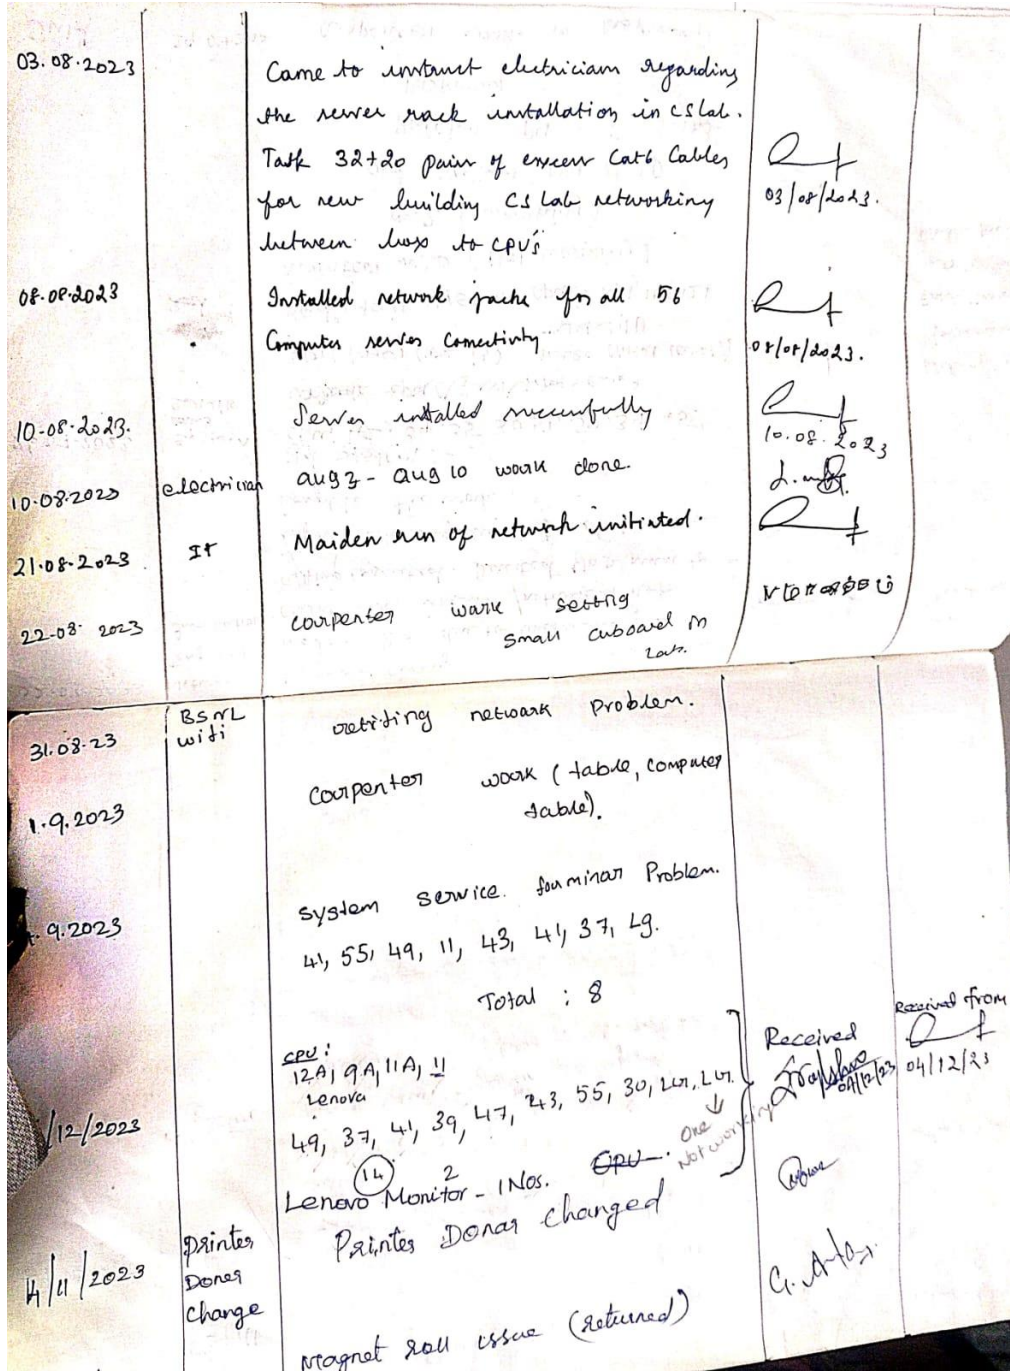 03.08.2023
Came to instruct electrician regarding
the server rack installation in CS Lab.
Task 32+20 pair of Cat6 Cables
for new building CS Lab networking
between box to CPU's
03/08/2023.
08.08.2023
Installed network jacks for all 56
Computer server Conectivity
08/08/2023.
10-08-2023.
Server installed successfully
10.08.2023
10.08.2023 electrician aug 3 - aug 10 work done.
21.08.2023 IT Maiden run of network initiated.
22-08-2023 carpenter work setting
small cuboard in
Lab.
31.08.23 BSNL
wifi
network Problem.
1.9.2023
Carpenter work (table, computer
table).
.9.2023
System service. for minor Problem.
41, 55, 49, 11, 43, 41, 37, 49.
Total : 8
CPU :
12A, 9A, 11A, 11
Lenova
Received
04/12/23
Received from
04/12/23
/12/2023
49, 37, 41, 39, 47, 43, 55, 30,
One
Not working
14
2
Lenovo Monitor - 1 Nos. CPU.
14/11/2023
Printer
Doner
Change
Printer Donar Changed
Magnet roll issue (returned)